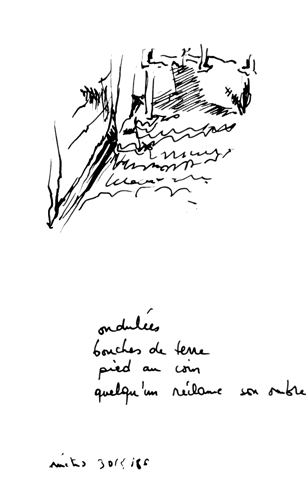 ondulées
bouches de terre
pied au coin
quelqu'un réclame son ombre